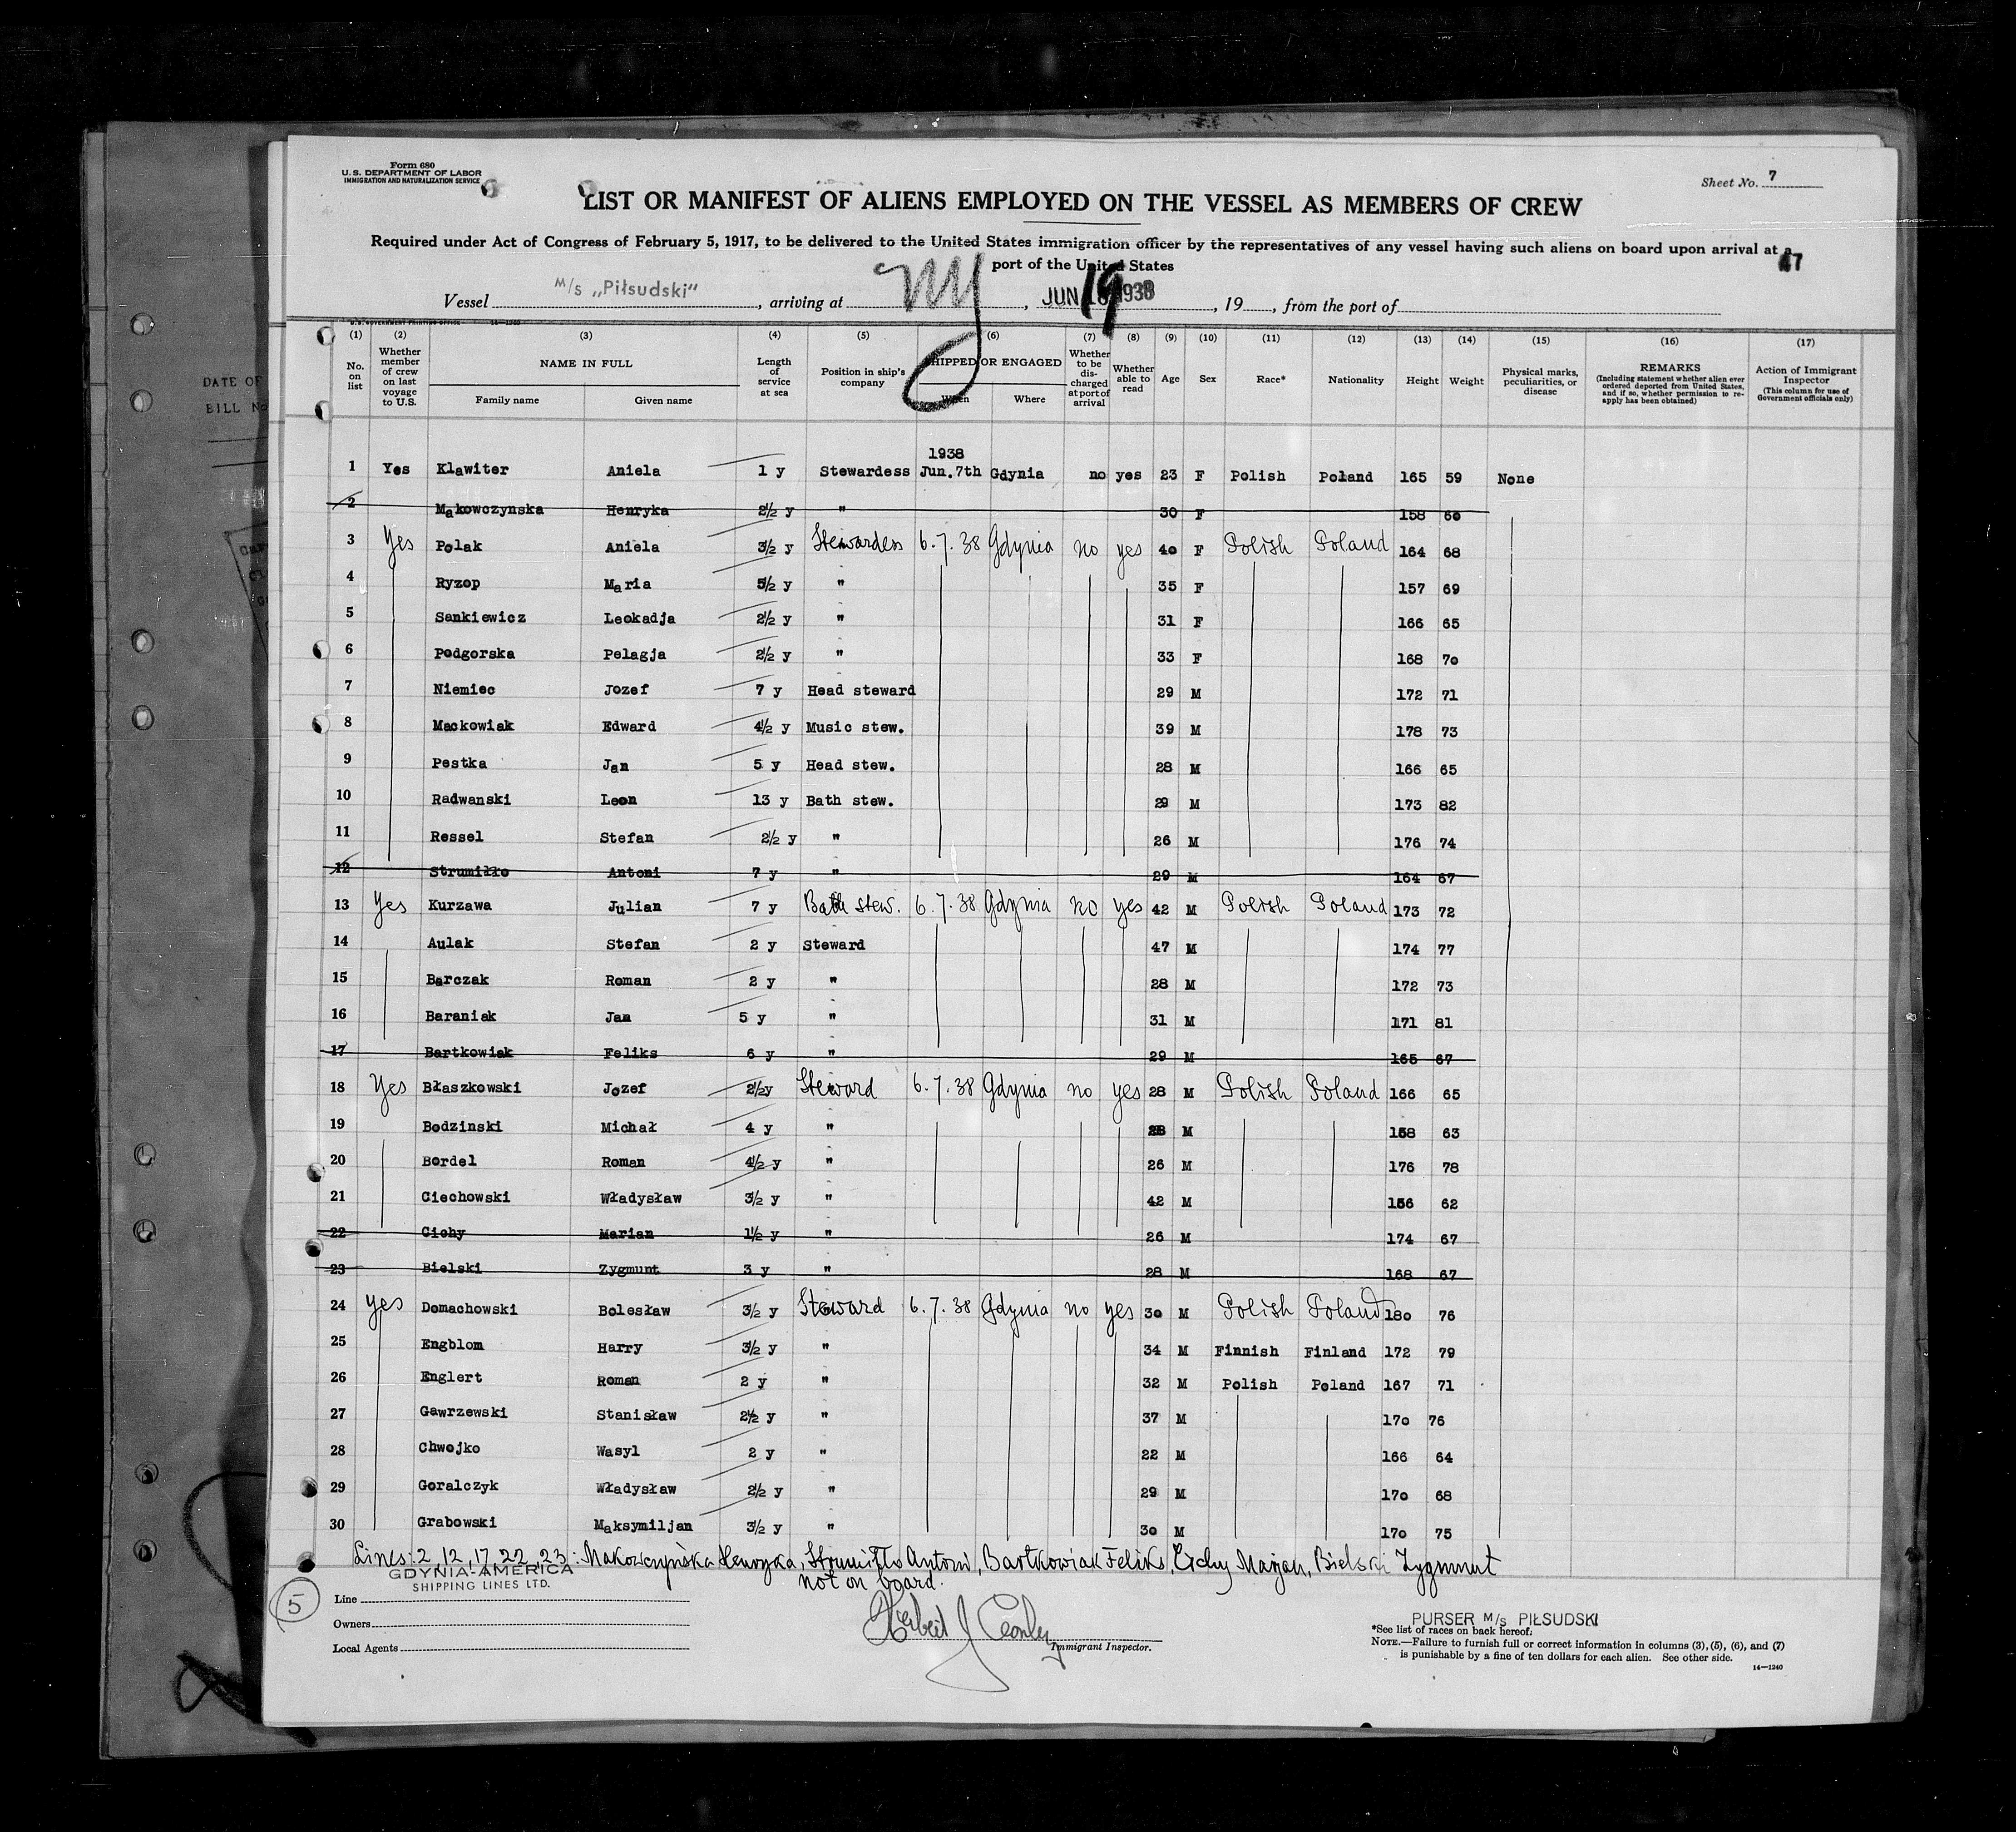 Form 680
U. S. DEPARTMENT OF LABOR
IMMIGRATION AND NATURALIZATION SERVICE
Sheet No. 7
LIST OR MANIFEST OF ALIENS EMPLOYED ON THE VESSEL AS MEMBERS OF CREW
Required under Act of Congress of February 5, 1917, to be delivered to the United States immigration officer by the representatives of any vessel having such aliens on board upon arrival at a
port of the United States
Vessel M/s „Piłsudski”, arriving at NY, JUN 19 1938, 19, from the port of
U.S. GOVERNMENT PRINTING OFFICE 14—1240
(1) (2) (3) (4) (5) (6) (7) (8) (9) (10) (11) (12) (13) (14) (15) (16) (17)
No. on list
Whether member of crew on last voyage to U.S.
NAME IN FULL
Family name Given name
Length of service at sea
Position in ship's company
SHIPPED OR ENGAGED
When Where
Whether to be discharged at port of arrival
Whether able to read
Age
Sex
Race*
Nationality
Height
Weight
Physical marks, peculiarities, or disease
REMARKS
(Including statement whether alien ever ordered deported from United States, and if so, whether permission to reapply has been obtained)
Action of Immigrant Inspector
(This column for use of Government officials only)
1938
1 Yes Klawiter Aniela 1 y Stewardess Jun. 7th Gdynia no yes 23 F Polish Poland 165 59 None
2 Makowczynska Henryka 2½ y " 30 F 158 60
3 Yes Polak Aniela 3½ y Stewardess 6. 7. 38 Gdynia no yes 40 F Polish Poland 164 68
4 Ryzop Maria 5½ y " 35 F 157 69
5 Sankiewicz Leokadja 2½ y " 31 F 166 65
6 Podgorska Pelagja 2½ y " 33 F 168 70
7 Niemiec Jozef 7 y Head steward 29 M 172 71
8 Mackowiak Edward 4½ y Music stew. 39 M 178 73
9 Pestka Jan 5 y Head stew. 28 M 166 65
10 Radwanski Leon 13 y Bath stew. 29 M 173 82
11 Ressel Stefan 2½ y " 26 M 176 74
12 Strumiłło Antoni 7 y " 29 M 164 67
13 Yes Kurzawa Julian 7 y Bath stew. 6. 7. 38 Gdynia no yes 42 M Polish Poland 173 72
14 Aulak Stefan 2 y Steward 47 M 174 77
15 Barczak Roman 2 y " 28 M 172 73
16 Baraniak Jan 5 y " 31 M 171 81
17 Bartkowiak Feliks 6 y " 29 M 165 67
18 Yes Błaszkowski Jozef 2½y Steward 6. 7. 38 Gdynia no yes 28 M Polish Poland 166 65
19 Bodzinski Michał 4 y " M 158 63
20 Bordel Roman 4½ y " 26 M 176 78
21 Ciechowski Władysław 3½ y " 42 M 156 62
22 Cichy Marian 1½ y " 26 M 174 67
23 Bielski Zygmunt 3 y " 28 M 168 67
24 yes Domachowski Bolesław 3½ y Steward 6. 7. 38 Gdynia no yes 30 M Polish Poland 180 76
25 Engblom Harry 3½ y " 34 M Finnish Finland 172 79
26 Englert Roman 2 y " 32 M Polish Poland 167 71
27 Gawrzewski Stanisław 2½ y " 37 M 170 76
28 Chwojko Wasyl 2 y " 22 M 166 64
29 Goralczyk Władysław 2½ y " 29 M 170 68
30 Grabowski Maksymiljan 3½ y " 30 M 170 75
Lines: 2, 12, 17, 22, 23: Makowczyńska Henryka, Strumiłło Antoni, Bartkowiak Feliks, Cichy Marjan, Bielski Zygmunt
not on board.
GDYNIA-AMERICA
SHIPPING LINES LTD.
5
Line
Owners
Local Agents
Immigrant Inspector.
PURSER M/s PIŁSUDSKI
*See list of races on back hereof.
NOTE.—Failure to furnish full or correct information in columns (3), (5), (6), and (7)
is punishable by a fine of ten dollars for each alien. See other side.
14—1240
DATE OF
BILL No